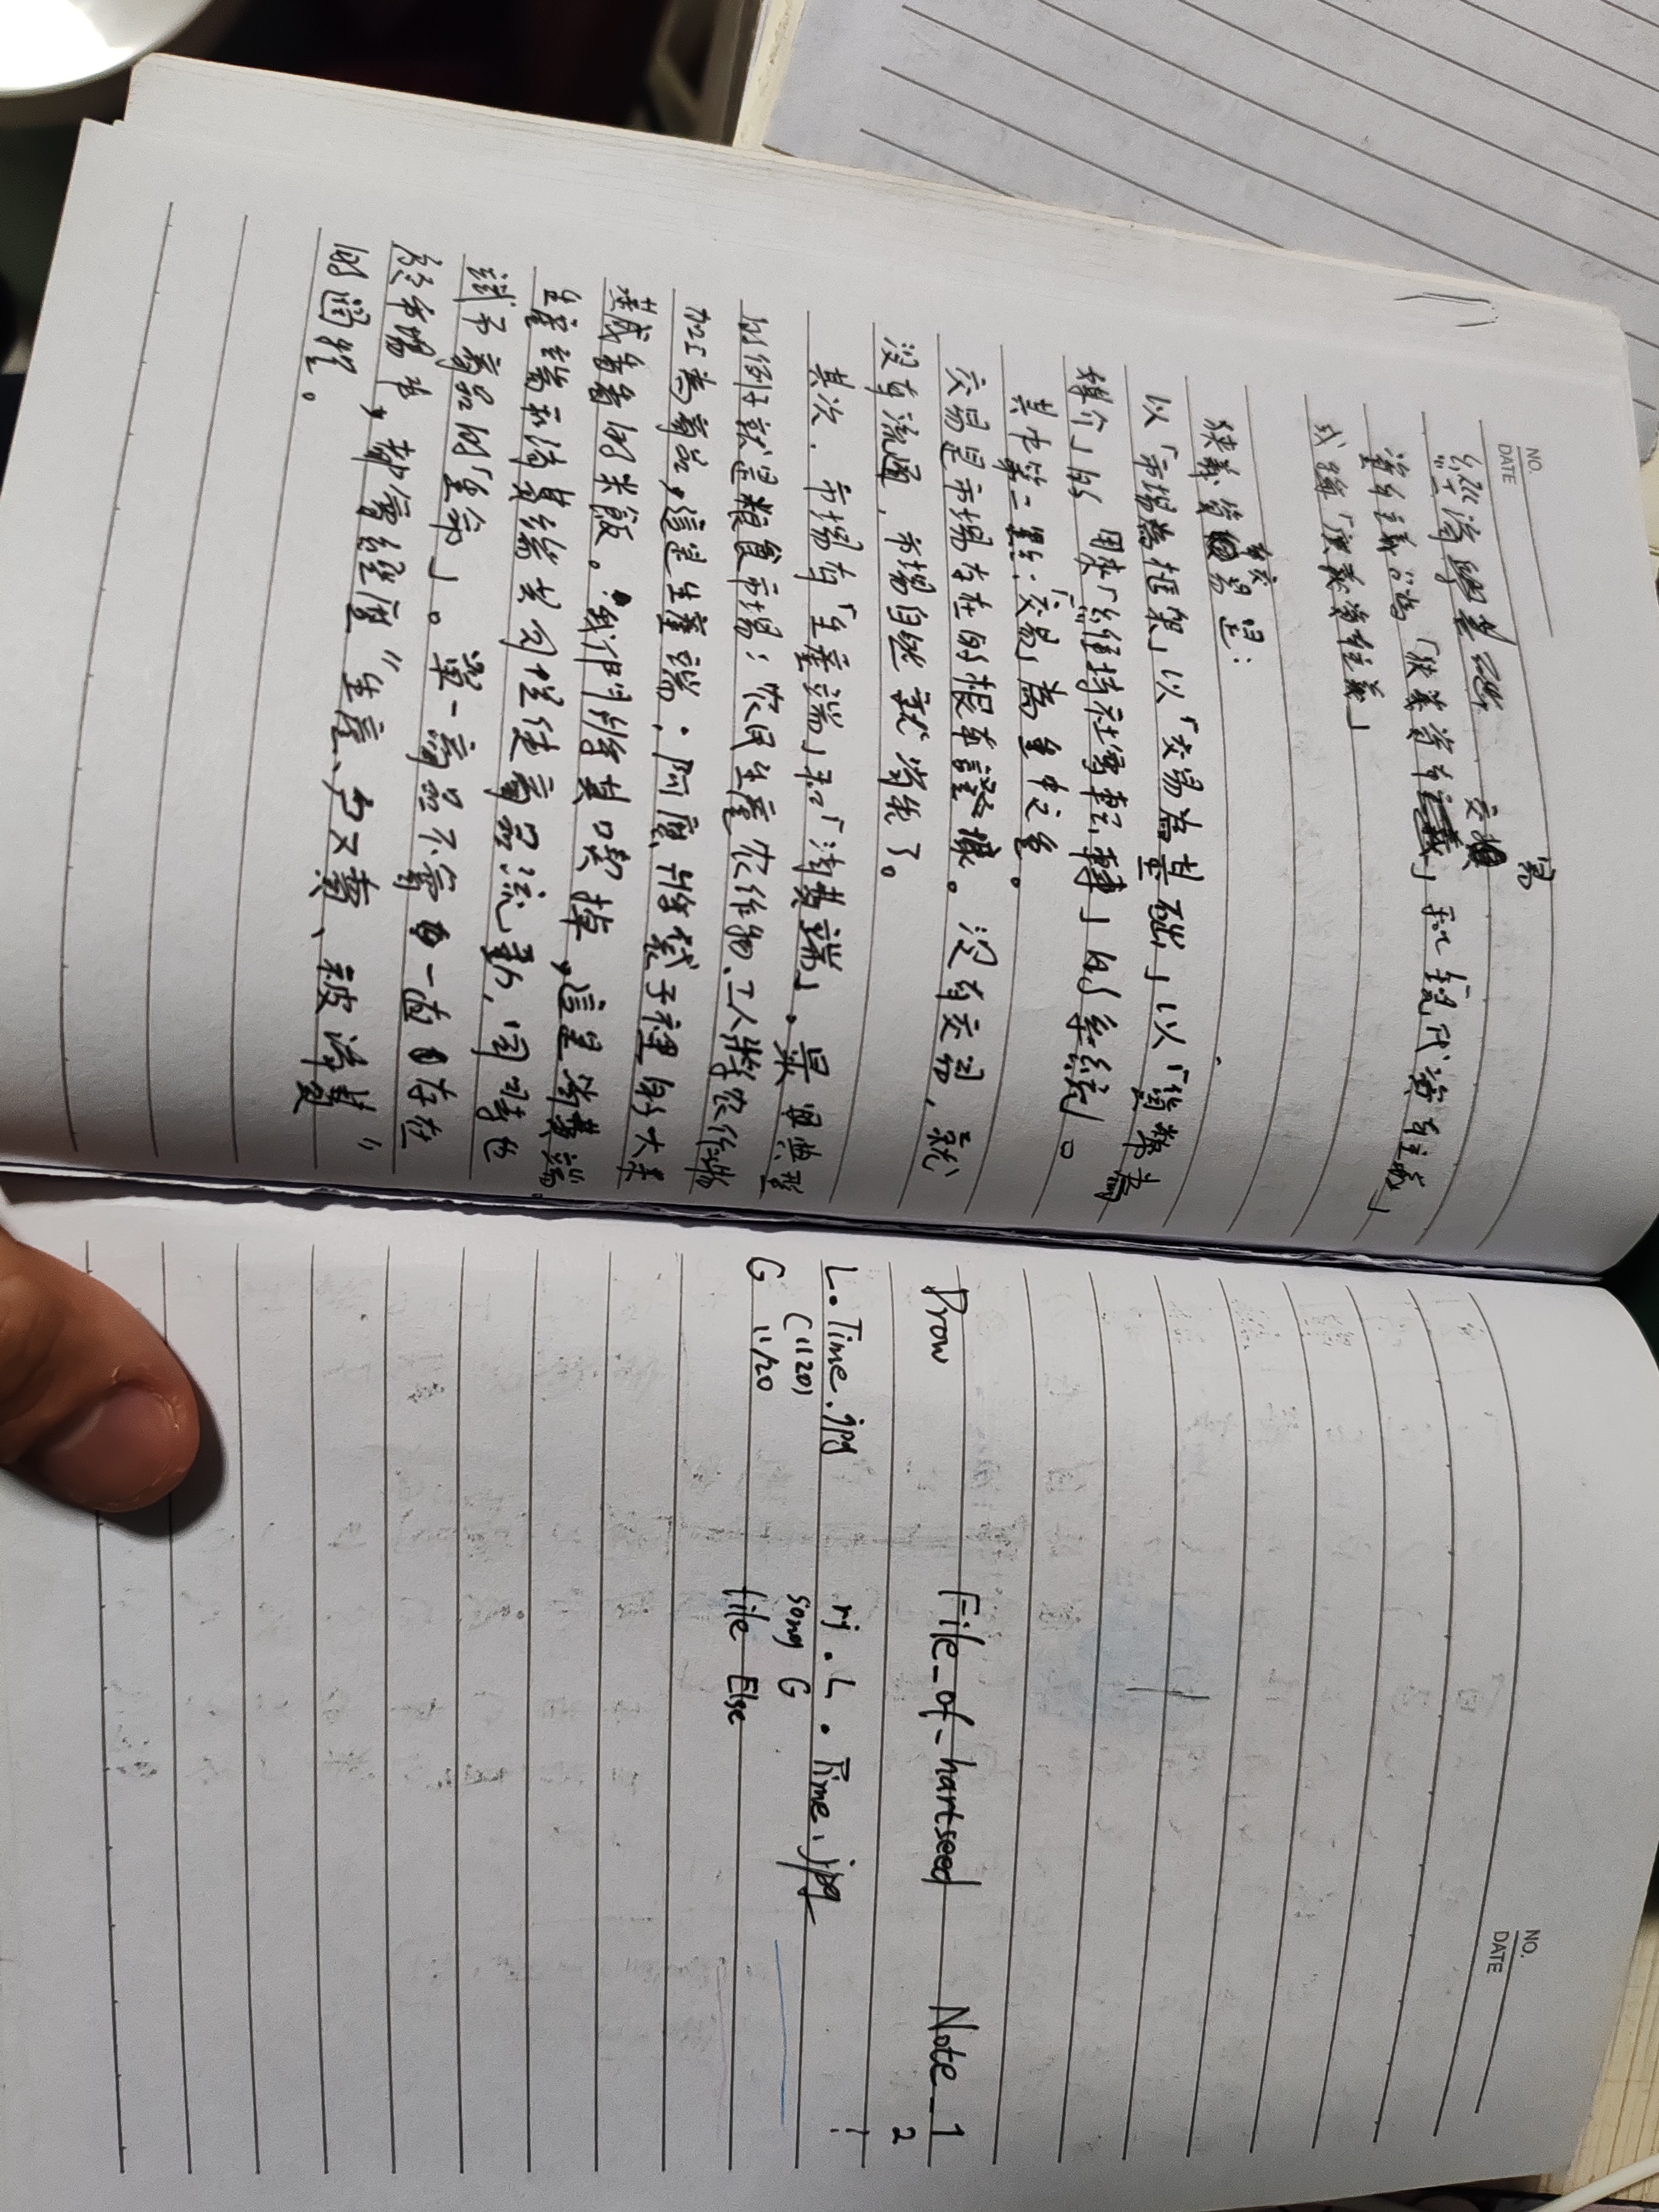 NO.
DATE
經濟學基礎
資本主義分為「狹義資本主義」和「現代資本主義」
或稱「廣義資本主義」
狹義貿易是:
以「市場為框架」以「交易為基礎」以「貨幣為
媒介」的 用來「維持社會運轉」的系統。
其中第一點:「交易」為重中之重。
交易是市場存在的根本證據。沒有交易,就
沒有流通,市場自然就消失了。
其次,市場有「生產端」和「消費端」。最典型
的例子就是糧食市場:农民生產农作物、工人將农作物
加工為商品,這是生產端.阿嬤將袋子裡的大米
蒸成香香的米飯。我們將其吃掉,這是消費端。
生產端和消費端共同促使商品流動,同時也
賦予商品的「生命」。單一商品不會一直存在
於市場中,都會經歷“生產、
的過程。
NO.
DATE
Prow File_of_hartseed Note_1
2
L.Time.jpg rj.L.Time.jpg
(1120) song G
G 11/20 file Else